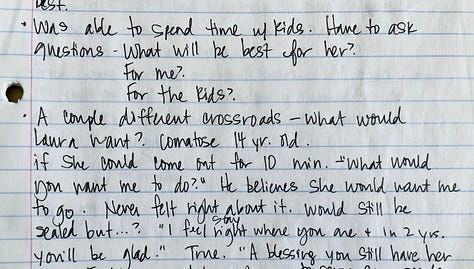 rest.
• Was able to spend time w/ kids. Have to ask
questions - What will be best for her?
For me?
For the kids?
• A couple different crossroads - what would
Laura want? Comatose 14 yr. old.
if she could come out for 10 min. - "What would
you want me to do?" He believes she would want me
to go. Never felt right about it. Would still be
sealed but...? "I feel stay right where you are + in 2 yrs.
you'll be glad." True. "A blessing you still have her